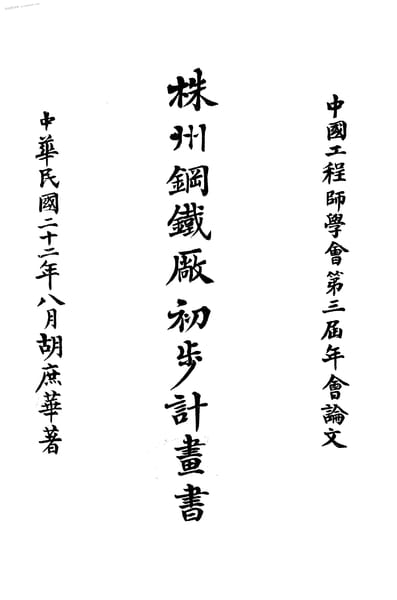 中國工程師學會第三屆年會論文
株州鋼鐵廠初步計畫書
中華民國二十二年八月胡庶華著